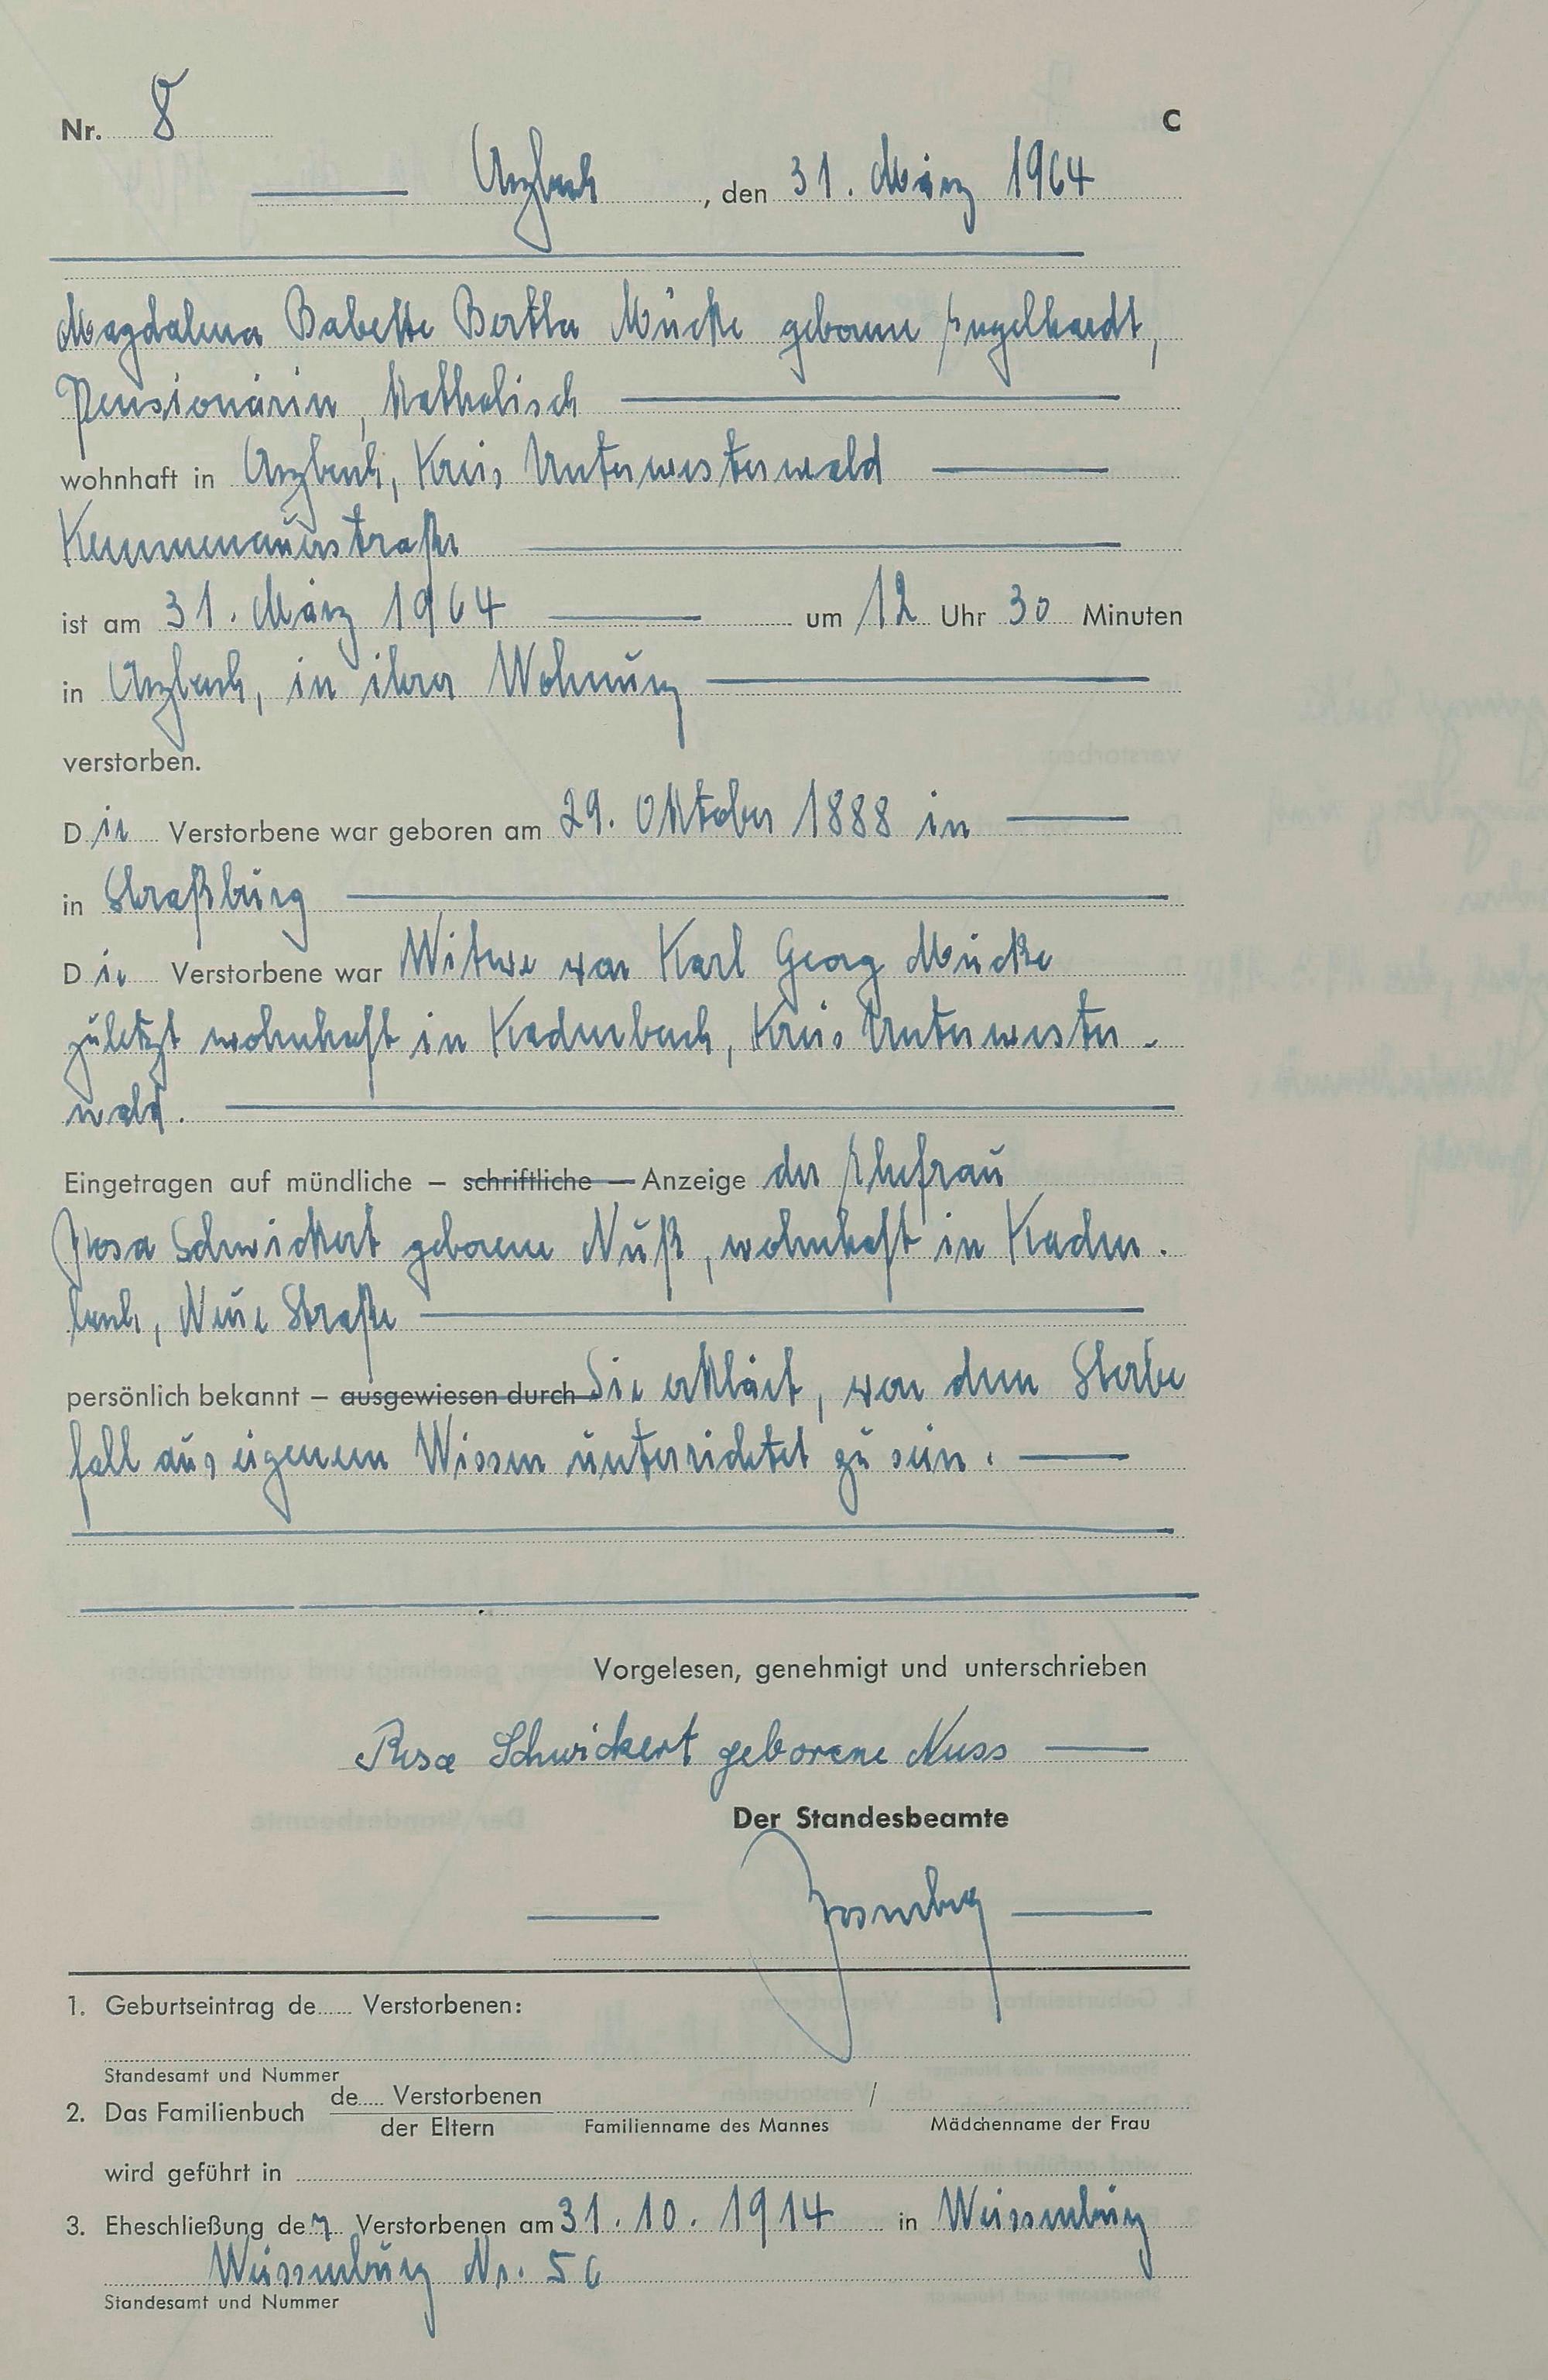 Nr. 8
C
Arzbach, den 31. März 1964
Magdalena Babette Bertha Mücke geborene Engelhardt,
Pensionärin, katholisch
wohnhaft in Arzbach, Kreis Unterwesterwald
Kemmenauerstraße
ist am 31. März 1964 um 12 Uhr 30 Minuten
in Arzbach, in ihrer Wohnung
verstorben.
Die Verstorbene war geboren am 29. Oktober 1888 in
in Straßburg
Die Verstorbene war Witwe von Karl Georg Mücke
zuletzt wohnhaft in Kadenbach, Kreis Unterwester-
wald.
Eingetragen auf mündliche – schriftliche – Anzeige der Ehefrau
Rosa Schwickert geborene Nuß, wohnhaft in Kaden-
bach, Neue Straße
persönlich bekannt – ausgewiesen durch Sie erklärt, von dem Sterbe
fall aus eigenem Wissen unterrichtet zu sein.
Vorgelesen, genehmigt und unterschrieben
Rosa Schwickert geborene Nuss
Der Standesbeamte
1. Geburtseintrag de Verstorbenen:
Standesamt und Nummer
2. Das Familienbuch de Verstorbenen /
der Eltern Familienname des Mannes Mädchenname der Frau
wird geführt in
3. Eheschließung der Verstorbenen am 31.10.1914 in Weissenburg
Weissenburg Nr. 56
Standesamt und Nummer